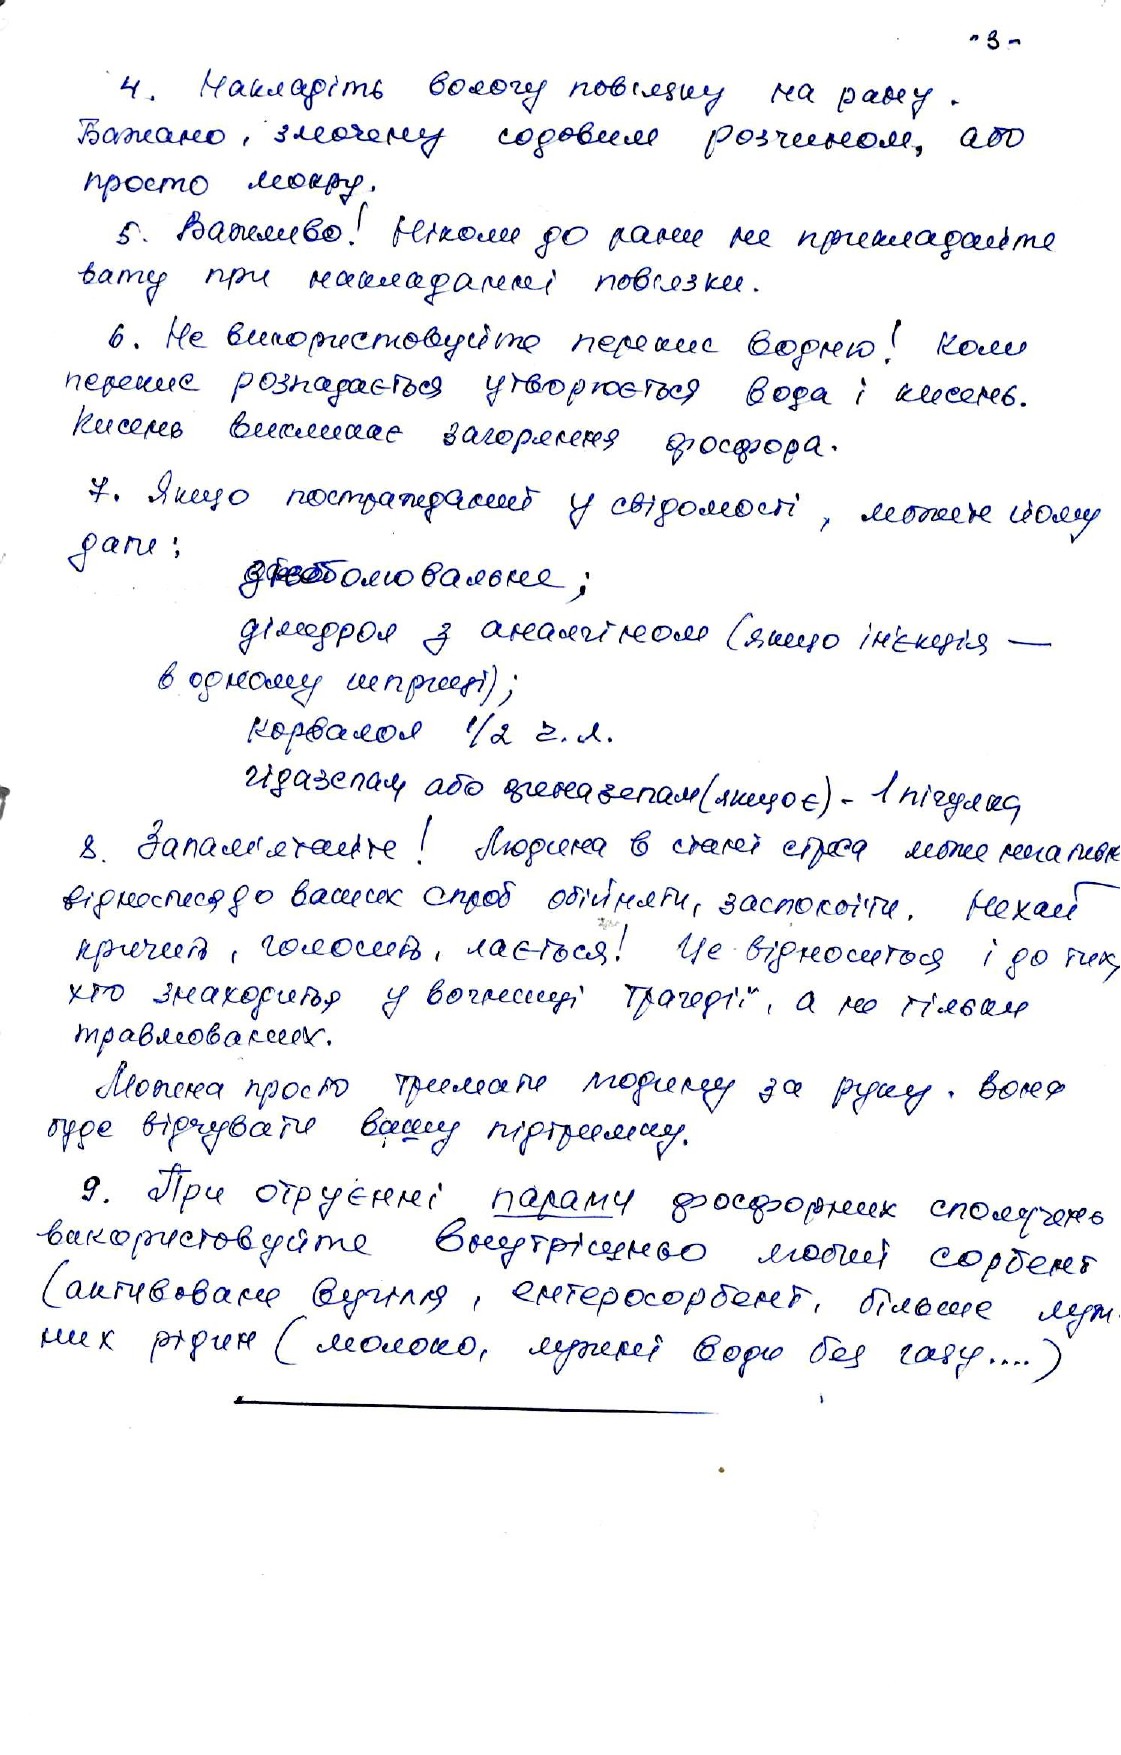 - 3 -
4. Накладіть вологу пов'язку на рану.
Бажано, змочену содовим розчином, або
просто мокру.
5. Важливо! Ніколи до рани не прикладайте
вату при накладанні пов'язки.
6. Не використовуйте перекис водню! Коли
перекис розпадається утворюється вода і кисень.
Кисень викликає загоряння фосфора.
7. Якщо постраждалий у свідомості, можете йому
дати:
знеболювальне;
дімедрол з анальгіном (якщо ін'єкція —
в одному шприці);
корвалол 1/2 ч.л.
гідазепам або феназепам (якщо є) - 1 пігулка
8. Запам'ятайте! Людина в стані стреса може негативно
відноситися до ваших спроб обійняти, заспокоїти. Нехай
кричить, голосить, лається! Це відноситься і до тих,
хто знаходиться у вогнищі трагедії, а не тільки
травмованих.
Можна просто тримати людину за руку. Вона
буде відчувати вашу підтримку.
9. При отруєнні парами фосфорних сполучень
використовуйте внутрішньо любий сорбент
(активоване вугілля, ентеросорбент, більше луж-
них рідин (молоко, лужні води без газу....)